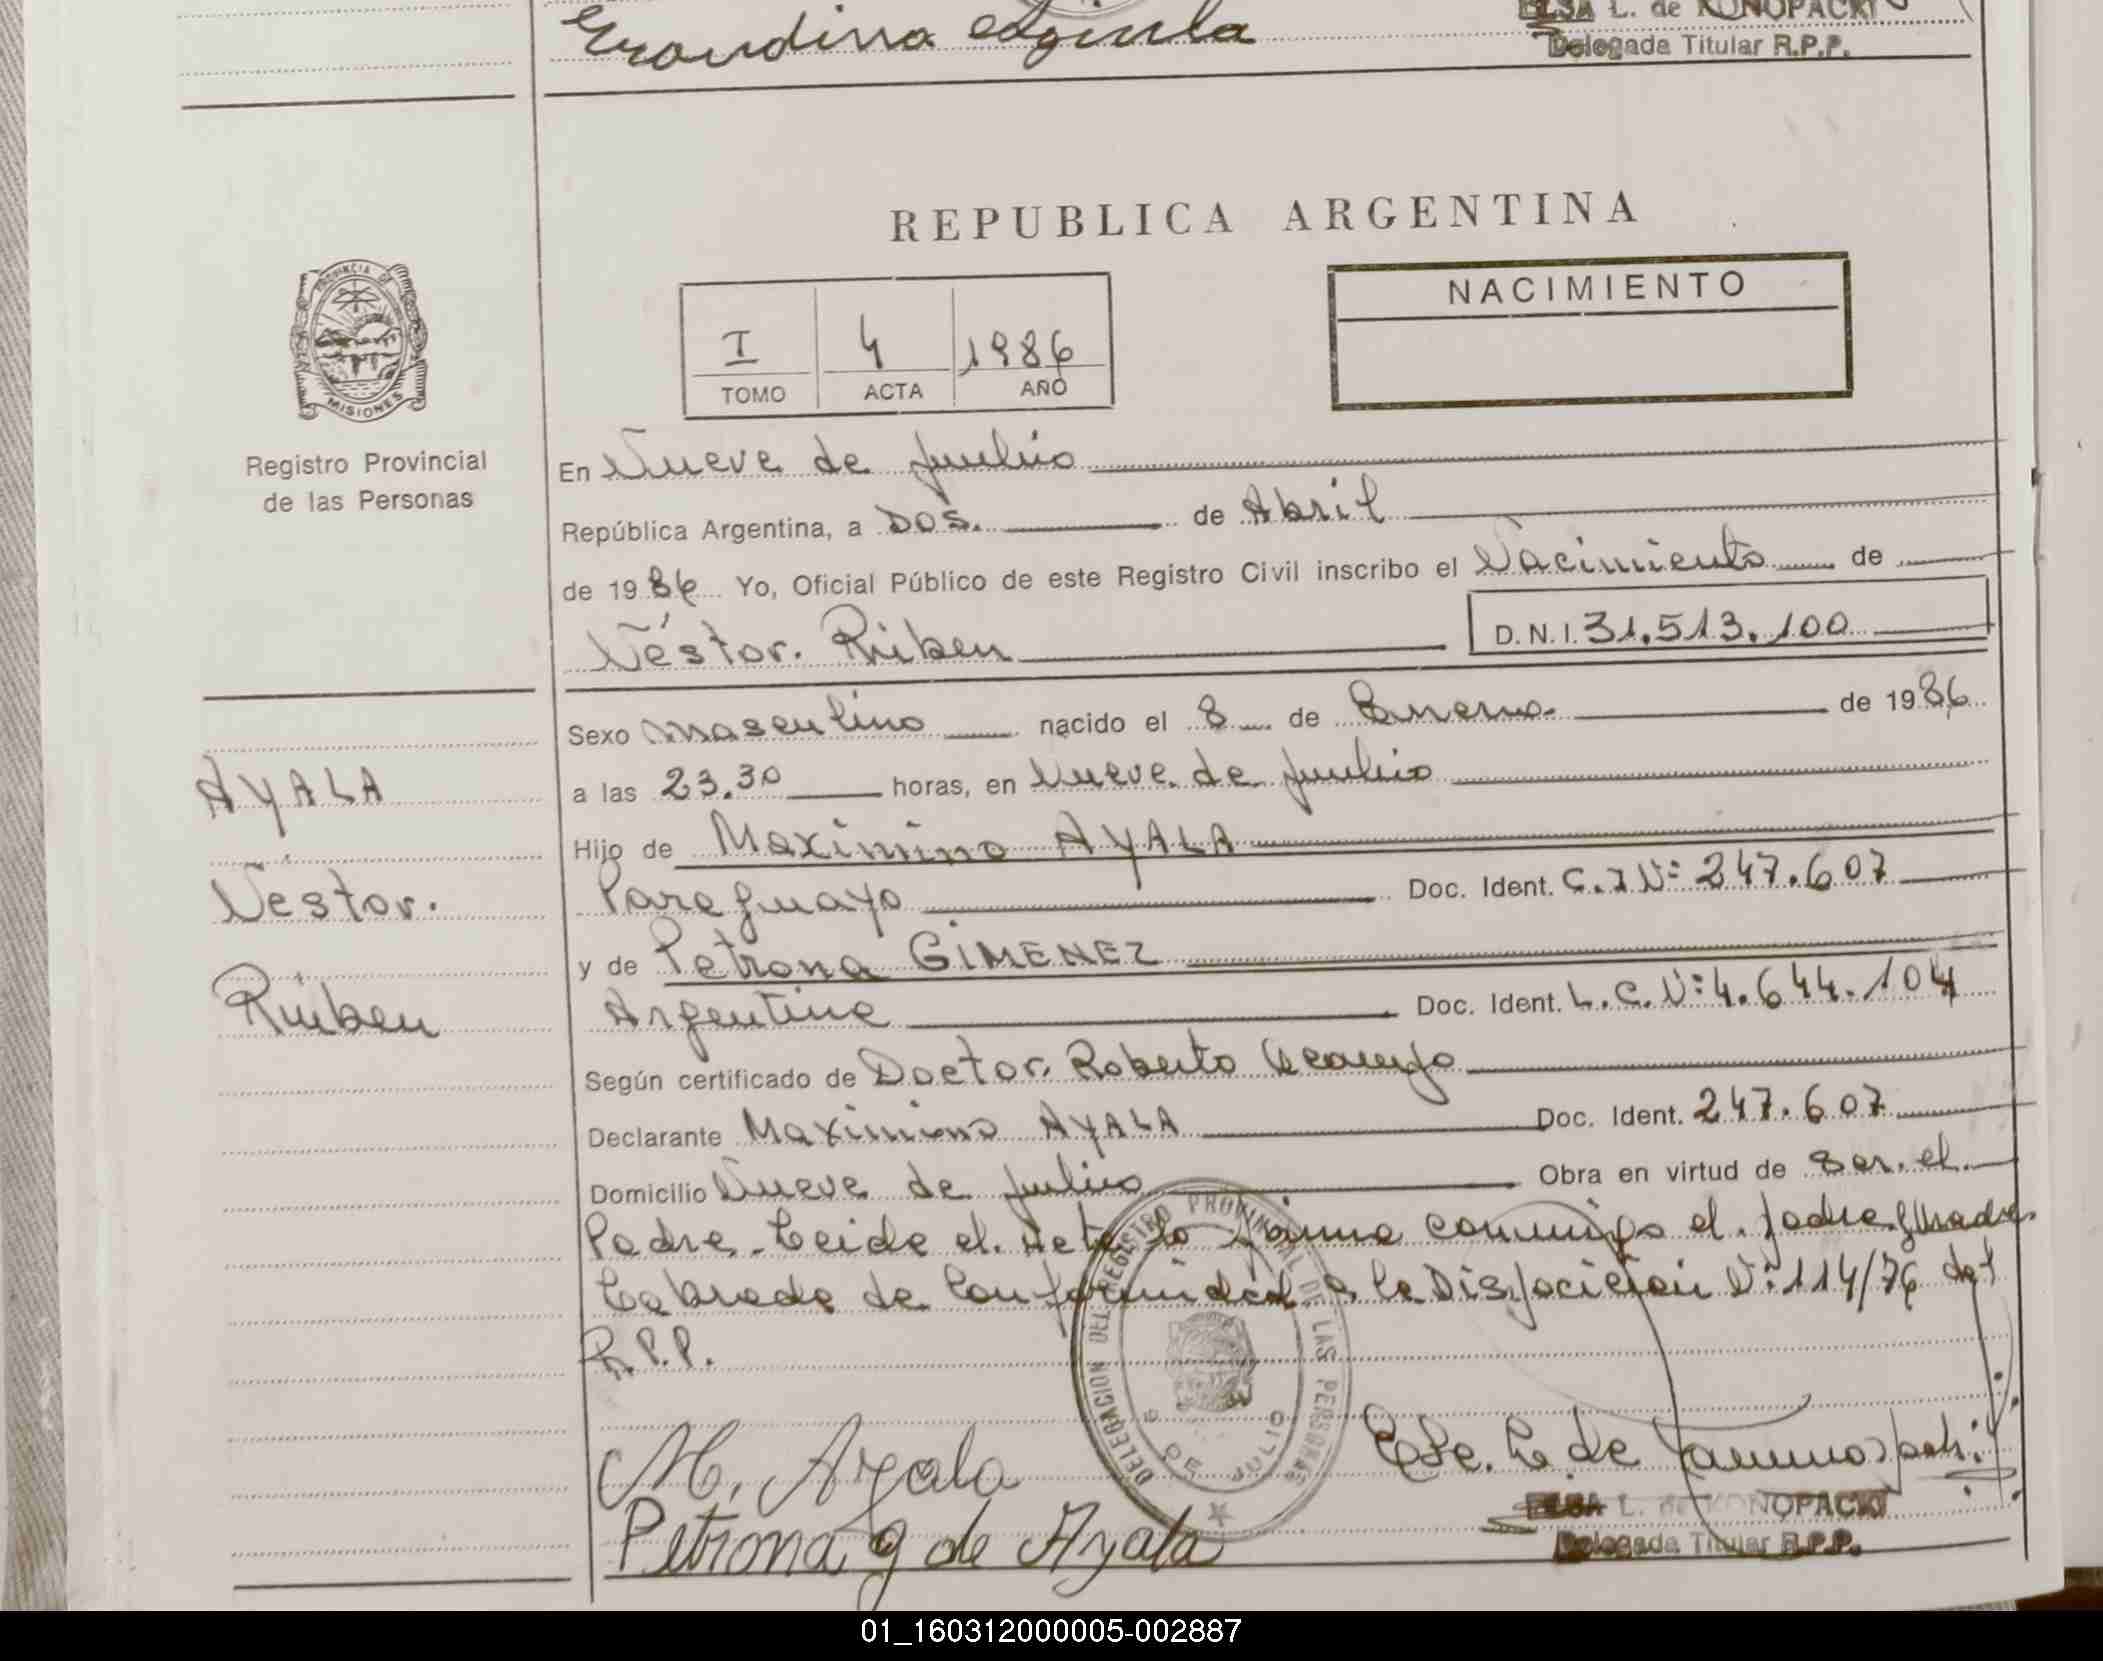 ELSA L. de KONOPACKI
Delegada Titular R.P.P.
REPUBLICA ARGENTINA
PROVINCIA DE
MISIONES
Registro Provincial
de las Personas
NACIMIENTO
I 4 1986
TOMO ACTA AÑO
En Nueve de Julio
República Argentina, a Dos. de Abril
de 1986 Yo, Oficial Público de este Registro Civil inscribo el Nacimiento de
Néstor. Rúben
D.N.I. 31.513.100
Sexo masculino nacido el 8 de Enero. de 1986
AYALA
a las 23.30 horas, en Nueve de Julio
Hijo de Maximino AYALA
Néstor.
Paraguayo Doc. Ident. C.I Nº 247.607
y de Petrona GIMENEZ
Rúben
Argentina Doc. Ident. L.C.Nº 4.644.104
Según certificado de Doctor. Roberto
Declarante Maximino AYALA Doc. Ident. 247.607
Domicilio Nueve de Julio Obra en virtud de Ser. el
Padre. Leida el. Acta la firma conmigo el. padre y madre
Labrada de Conformidad a la Disposición Nº 114/76 del
R.P.P.
DELEGACION DEL REGISTRO PROVINCIAL DE LAS PERSONAS
9 DE JULIO
M. Ayala
Petrona g de Ayala
ELSA L. de KONOPACKI
Delegada Titular R.P.P.
01_160312000005-002887